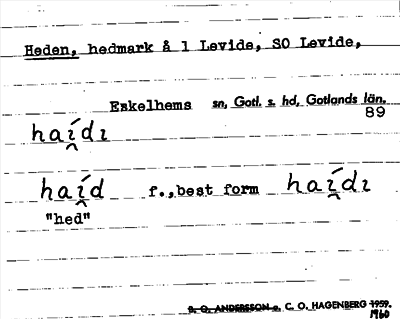 Heden, hedmark å 1 Levide, SO Levide,
Eskelhems sn, Gotl. s. hd, Gotlands län.
89
haí̯dı
haí̯d f.,best form haí̯dı
"hed"
S. O. ANDERSSON o. C. O. HAGENBERG 1959.
1960